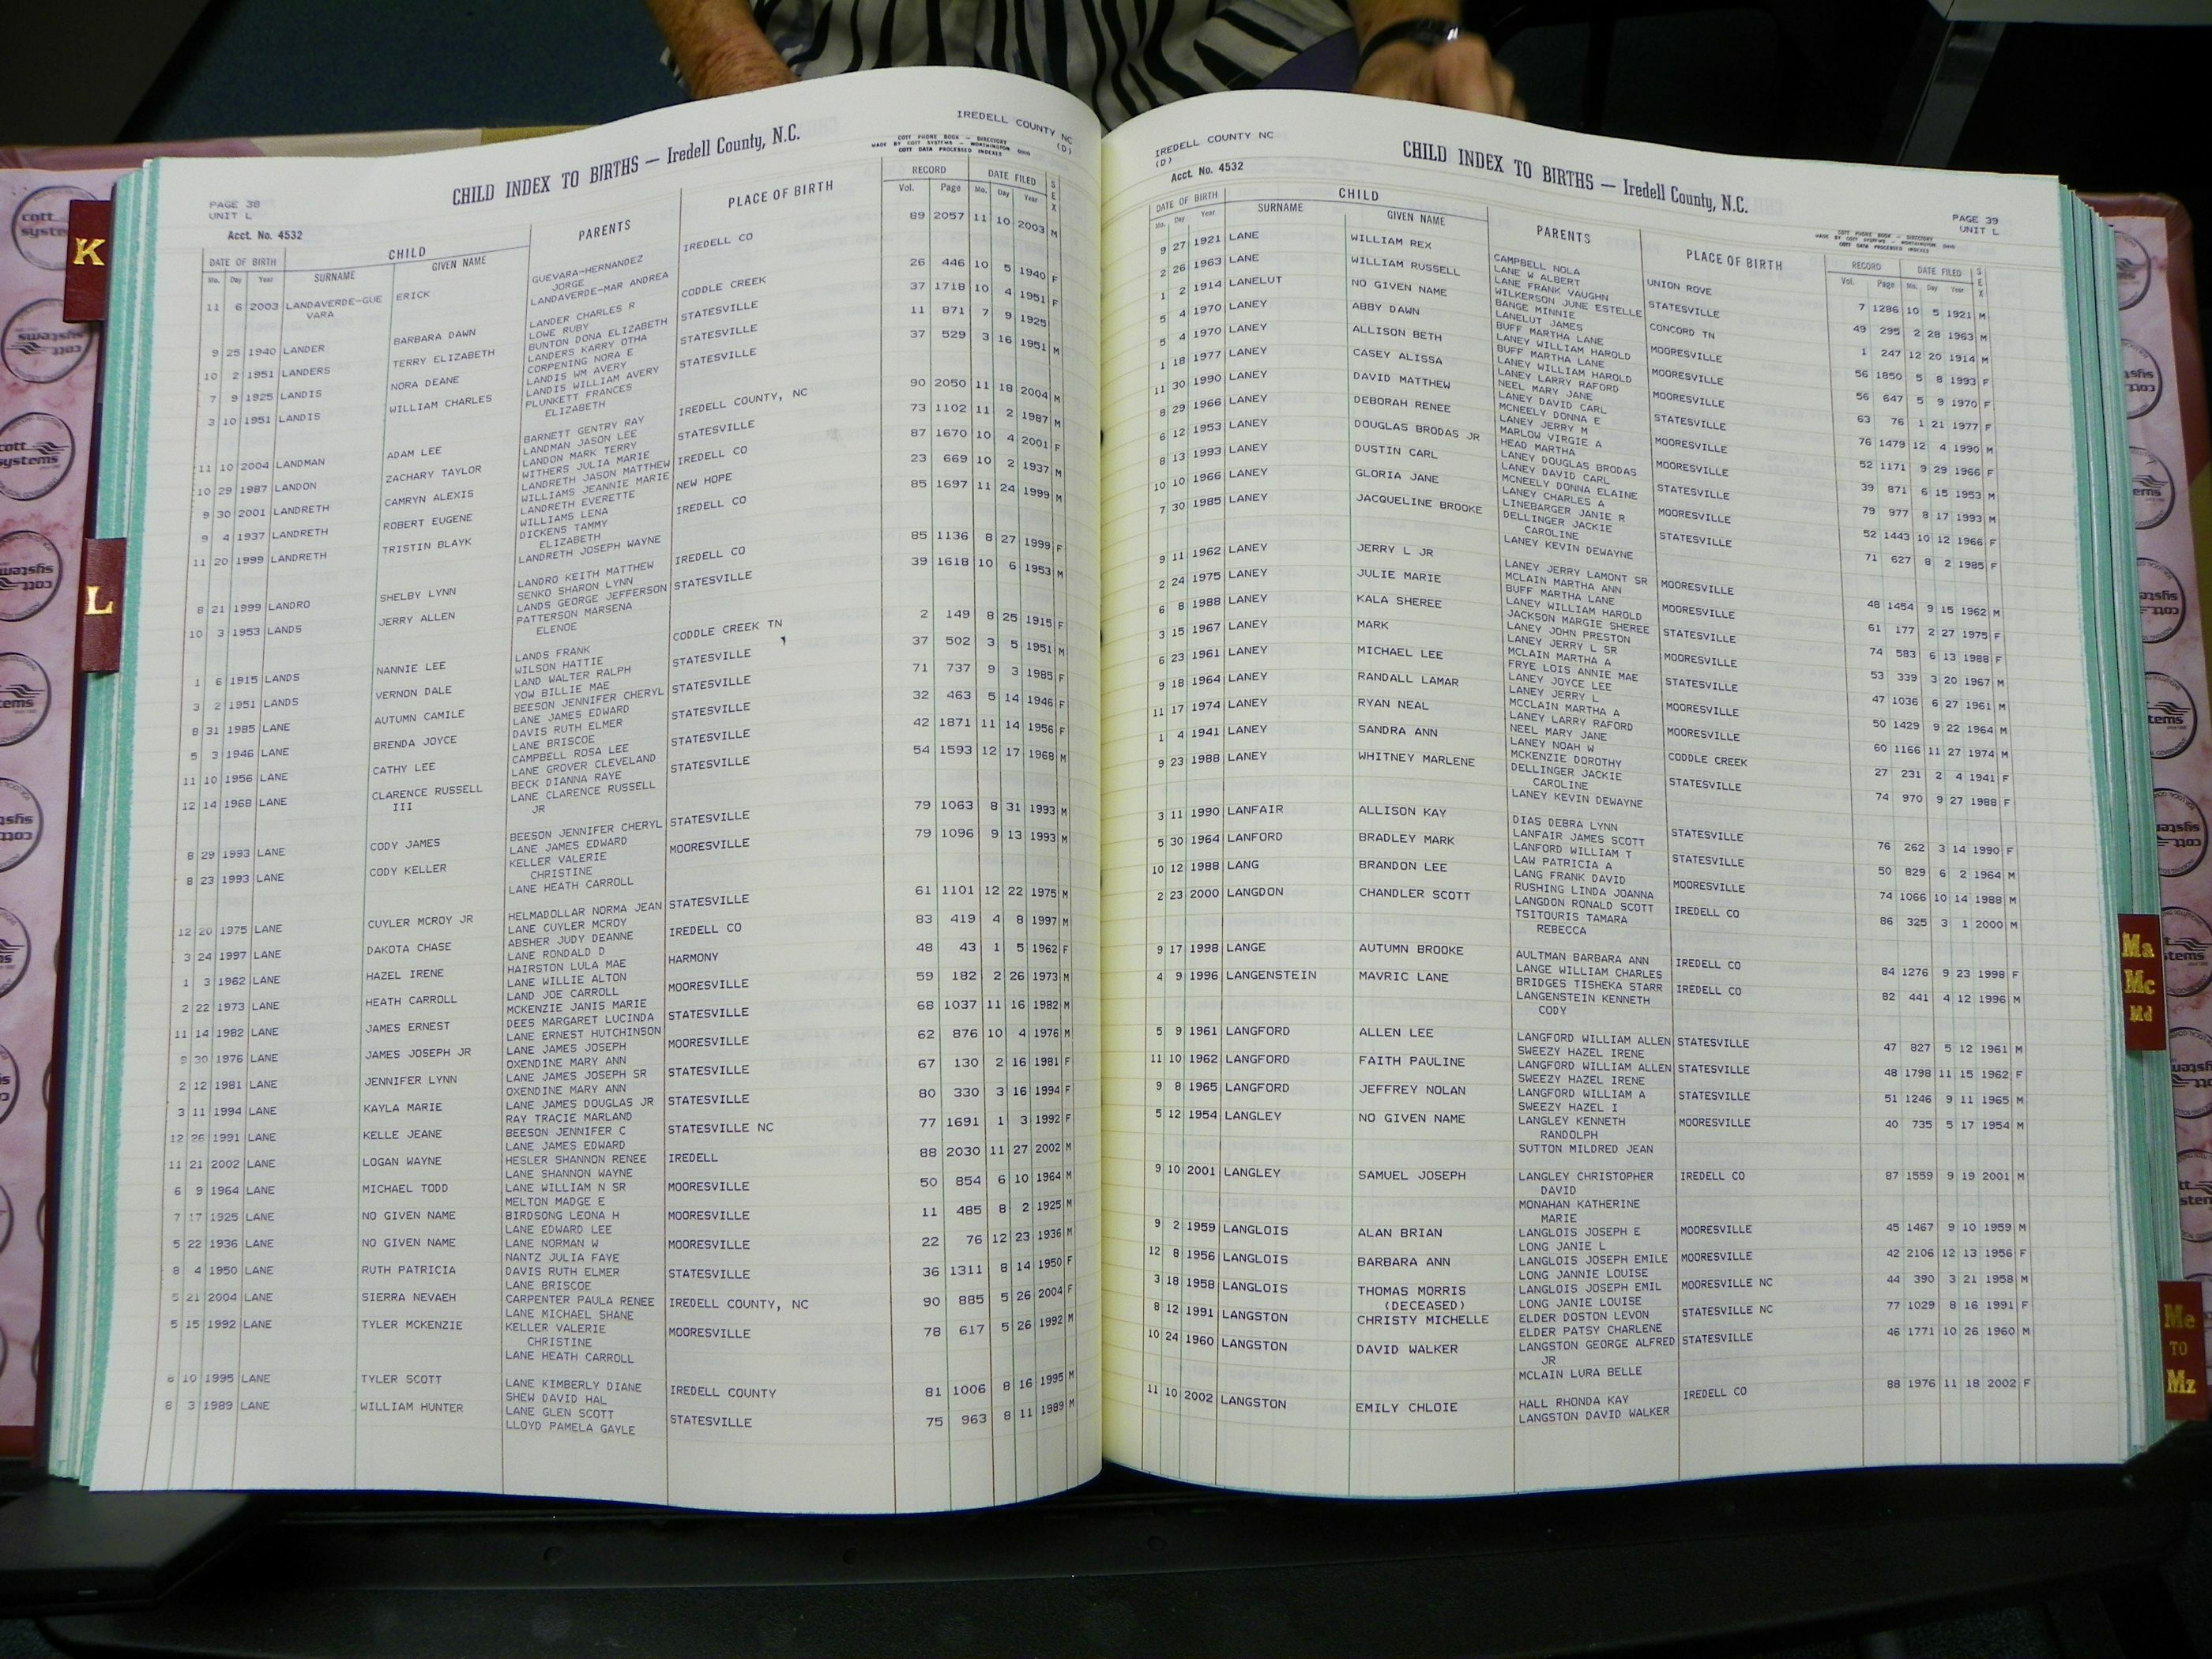 IREDELL COUNTY NC
(D)
CHILD INDEX TO BIRTHS — Iredell County, N.C.
COTT PHONE BOOK — DIRECTORY
MADE BY COTT SYSTEMS — WORTHINGTON OHIO
COTT DATA PROCESSED INDEXES
PAGE 38
UNIT L
Acct. No. 4532
DATE OF BIRTH CHILD PARENTS PLACE OF BIRTH RECORD DATE FILED SEX
Mo. Day Year SURNAME GIVEN NAME Vol. Page Mo. Day Year
11 6 2003 LANDAVERDE-GUE ERICK GUEVARA-HERNANDEZ IREDELL CO 89 2057 11 10 2003 M
VARA JORGE
LANDAVERDE-MAR ANDREA
9 25 1940 LANDER BARBARA DAWN LANDER CHARLES R CODDLE CREEK 26 446 10 5 1940 F
LOWE RUBY
10 2 1951 LANDERS TERRY ELIZABETH BUNTON DONA ELIZABETH STATESVILLE 37 1718 10 4 1951 F
LANDERS KARRY OTHA
7 9 1925 LANDIS NORA DEANE CORPENING NORA E STATESVILLE 11 871 7 9 1925
LANDIS WM AVERY
3 10 1951 LANDIS WILLIAM CHARLES LANDIS WILLIAM AVERY STATESVILLE 37 529 3 16 1951 M
PLUNKETT FRANCES
ELIZABETH
11 10 2004 LANDMAN ADAM LEE BARNETT GENTRY RAY IREDELL COUNTY, NC 90 2050 11 18 2004 M
LANDMAN JASON LEE
10 29 1987 LANDON ZACHARY TAYLOR LANDON MARK TERRY STATESVILLE 73 1102 11 2 1987 M
WITHERS JULIA MARIE
9 30 2001 LANDRETH CAMRYN ALEXIS LANDRETH JASON MATTHEW IREDELL CO 87 1670 10 4 2001 F
WILLIAMS JEANNIE MARIE
9 4 1937 LANDRETH ROBERT EUGENE LANDRETH EVERETTE NEW HOPE 23 669 10 2 1937 M
WILLIAMS LENA
11 20 1999 LANDRETH TRISTIN BLAYK DICKENS TAMMY IREDELL CO 85 1697 11 24 1999 M
ELIZABETH
LANDRETH JOSEPH WAYNE
8 21 1999 LANDRO SHELBY LYNN LANDRO KEITH MATTHEW IREDELL CO 85 1136 8 27 1999 F
SENKO SHARON LYNN
10 3 1953 LANDS JERRY ALLEN LANDS GEORGE JEFFERSON STATESVILLE 39 1618 10 6 1953 M
PATTERSON MARSENA
ELENOE
1 6 1915 LANDS NANNIE LEE LANDS FRANK CODDLE CREEK TN 2 149 8 25 1915 F
WILSON HATTIE
3 2 1951 LANDS VERNON DALE LAND WALTER RALPH STATESVILLE 37 502 3 5 1951 M
YOW BILLIE MAE
8 31 1985 LANE AUTUMN CAMILE BEESON JENNIFER CHERYL STATESVILLE 71 737 9 3 1985 F
LANE JAMES EDWARD
5 3 1946 LANE BRENDA JOYCE DAVIS RUTH ELMER STATESVILLE 32 463 5 14 1946 F
LANE BRISCOE
11 10 1956 LANE CATHY LEE CAMPBELL ROSA LEE STATESVILLE 42 1871 11 14 1956 F
LANE GROVER CLEVELAND
12 14 1968 LANE CLARENCE RUSSELL BECK DIANNA RAYE STATESVILLE 54 1593 12 17 1968 M
III LANE CLARENCE RUSSELL
JR
8 29 1993 LANE CODY JAMES BEESON JENNIFER CHERYL STATESVILLE 79 1063 8 31 1993 M
LANE JAMES EDWARD
8 23 1993 LANE CODY KELLER KELLER VALERIE MOORESVILLE 79 1096 9 13 1993 M
CHRISTINE
LANE HEATH CARROLL
12 20 1975 LANE CUYLER MCROY JR HELMADOLLAR NORMA JEAN STATESVILLE 61 1101 12 22 1975 M
LANE CUYLER MCROY
3 24 1997 LANE DAKOTA CHASE ABSHER JUDY DEANNE IREDELL CO 83 419 4 8 1997 M
LANE RONDALD D
1 3 1962 LANE HAZEL IRENE HAIRSTON LULA MAE HARMONY 48 43 1 5 1962 F
LANE WILLIE ALTON
2 22 1973 LANE HEATH CARROLL LAND JOE CARROLL MOORESVILLE 59 182 2 26 1973 M
MCKENZIE JANIS MARIE
11 14 1982 LANE JAMES ERNEST DEES MARGARET LUCINDA STATESVILLE 68 1037 11 16 1982 M
LANE ERNEST HUTCHINSON
9 30 1976 LANE JAMES JOSEPH JR LANE JAMES JOSEPH MOORESVILLE 62 876 10 4 1976 M
OXENDINE MARY ANN
2 12 1981 LANE JENNIFER LYNN LANE JAMES JOSEPH SR STATESVILLE 67 130 2 16 1981 F
OXENDINE MARY ANN
3 11 1994 LANE KAYLA MARIE LANE JAMES DOUGLAS JR STATESVILLE 80 330 3 16 1994 F
RAY TRACIE MARLAND
12 26 1991 LANE KELLE JEANE BEESON JENNIFER C STATESVILLE NC 77 1691 1 3 1992 F
LANE JAMES EDWARD
11 21 2002 LANE LOGAN WAYNE HESLER SHANNON RENEE IREDELL 88 2030 11 27 2002 M
LANE SHANNON WAYNE
6 9 1964 LANE MICHAEL TODD LANE WILLIAM N SR MOORESVILLE 50 854 6 10 1964 M
MELTON MADGE E
7 17 1925 LANE NO GIVEN NAME BIRDSONG LEONA H MOORESVILLE 11 485 8 2 1925 M
LANE EDWARD LEE
5 22 1936 LANE NO GIVEN NAME LANE NORMAN W MOORESVILLE 22 76 12 23 1936 M
NANTZ JULIA FAYE
8 4 1950 LANE RUTH PATRICIA DAVIS RUTH ELMER STATESVILLE 36 1311 8 14 1950 F
LANE BRISCOE
5 21 2004 LANE SIERRA NEVAEH CARPENTER PAULA RENEE IREDELL COUNTY, NC 90 885 5 26 2004 F
LANE MICHAEL SHANE
5 15 1992 LANE TYLER MCKENZIE KELLER VALERIE MOORESVILLE 78 617 5 26 1992 M
CHRISTINE
LANE HEATH CARROLL
8 10 1995 LANE TYLER SCOTT LANE KIMBERLY DIANE IREDELL COUNTY 81 1006 8 16 1995 M
SHEW DAVID HAL
8 3 1989 LANE WILLIAM HUNTER LANE GLEN SCOTT STATESVILLE 75 963 8 11 1989 M
LLOYD PAMELA GAYLE
IREDELL COUNTY NC
(D)
Acct. No. 4532
CHILD INDEX TO BIRTHS — Iredell County, N.C.
PAGE 39
UNIT L
COTT PHONE BOOK — DIRECTORY
MADE BY COTT SYSTEMS — WORTHINGTON OHIO
COTT DATA PROCESSED INDEXES
DATE OF BIRTH CHILD PARENTS PLACE OF BIRTH RECORD DATE FILED SEX
Mo. Day Year SURNAME GIVEN NAME Vol. Page Mo. Day Year
9 27 1921 LANE WILLIAM REX CAMPBELL NOLA UNION ROVE 7 1286 10 5 1921 M
LANE W ALBERT
2 26 1963 LANE WILLIAM RUSSELL LANE FRANK VAUGHN STATESVILLE 49 295 2 28 1963 M
WILKERSON JUNE ESTELLE
1 2 1914 LANELUT NO GIVEN NAME BANGE MINNIE CONCORD TN 1 247 12 20 1914 M
LANELUT JAMES
5 4 1970 LANEY ABBY DAWN BUFF MARTHA LANE MOORESVILLE 56 1850 5 8 1993 F
LANEY WILLIAM HAROLD
5 4 1970 LANEY ALLISON BETH BUFF MARTHA LANE MOORESVILLE 56 647 5 9 1970 F
LANEY WILLIAM HAROLD
1 18 1977 LANEY CASEY ALISSA LANEY LARRY RAFORD MOORESVILLE 63 76 1 21 1977 F
NEEL MARY JANE
11 30 1990 LANEY DAVID MATTHEW LANEY DAVID CARL STATESVILLE 76 1479 12 4 1990 M
MCNEELY DONNA E
8 29 1966 LANEY DEBORAH RENEE LANEY JERRY M MOORESVILLE 52 1171 9 29 1966 F
MARLOW VIRGIE A
6 12 1953 LANEY DOUGLAS BRODAS JR HEAD MARTHA MOORESVILLE 39 871 6 15 1953 M
LANEY DOUGLAS BRODAS
8 13 1993 LANEY DUSTIN CARL LANEY DAVID CARL STATESVILLE 79 977 8 17 1993 M
MCNEELY DONNA ELAINE
10 10 1966 LANEY GLORIA JANE LANEY CHARLES A MOORESVILLE 52 1443 10 12 1966 F
LINEBARGER JANIE R
7 30 1985 LANEY JACQUELINE BROOKE DELLINGER JACKIE STATESVILLE 71 627 8 2 1985 F
CAROLINE
LANEY KEVIN DEWAYNE
9 11 1962 LANEY JERRY L JR LANEY JERRY LAMONT SR MOORESVILLE 48 1454 9 15 1962 M
MCLAIN MARTHA ANN
2 24 1975 LANEY JULIE MARIE BUFF MARTHA LANE MOORESVILLE 61 177 2 27 1975 F
LANEY WILLIAM HAROLD
6 8 1988 LANEY KALA SHEREE JACKSON MARGIE SHEREE STATESVILLE 74 583 6 13 1988 F
LANEY JOHN PRESTON
3 15 1967 LANEY MARK LANEY JERRY L SR MOORESVILLE 53 339 3 20 1967 M
MCLAIN MARTHA A
6 23 1961 LANEY MICHAEL LEE FRYE LOIS ANNIE MAE STATESVILLE 47 1036 6 27 1961 M
LANEY JOYCE LEE
9 18 1964 LANEY RANDALL LAMAR LANEY JERRY L MOORESVILLE 50 1429 9 22 1964 M
MCCLAIN MARTHA A
11 17 1974 LANEY RYAN NEAL LANEY LARRY RAFORD MOORESVILLE 60 1166 11 27 1974 M
NEEL MARY JANE
1 4 1941 LANEY SANDRA ANN LANEY NOAH W CODDLE CREEK 27 231 2 4 1941 F
MCKENZIE DOROTHY
9 23 1988 LANEY WHITNEY MARLENE DELLINGER JACKIE STATESVILLE 74 970 9 27 1988 F
CAROLINE
LANEY KEVIN DEWAYNE
3 11 1990 LANFAIR ALLISON KAY DIAS DEBRA LYNN STATESVILLE 76 262 3 14 1990 F
LANFAIR JAMES SCOTT
5 30 1964 LANFORD BRADLEY MARK LANFORD WILLIAM T STATESVILLE 50 829 6 2 1964 M
LAW PATRICIA A
10 12 1988 LANG BRANDON LEE LANG FRANK DAVID MOORESVILLE 74 1066 10 14 1988 M
RUSHING LINDA JOANNA
2 23 2000 LANGDON CHANDLER SCOTT LANGDON RONALD SCOTT IREDELL CO 86 325 3 1 2000 M
TSITOURIS TAMARA
REBECCA
9 17 1998 LANGE AUTUMN BROOKE AULTMAN BARBARA ANN IREDELL CO 84 1276 9 23 1998 F
LANGE WILLIAM CHARLES
4 9 1996 LANGENSTEIN MAVRIC LANE BRIDGES TISHEKA STARR IREDELL CO 82 441 4 12 1996 M
LANGENSTEIN KENNETH
CODY
5 9 1961 LANGFORD ALLEN LEE LANGFORD WILLIAM ALLEN STATESVILLE 47 827 5 12 1961 M
SWEEZY HAZEL IRENE
11 10 1962 LANGFORD FAITH PAULINE LANGFORD WILLIAM ALLEN STATESVILLE 48 1798 11 15 1962 F
SWEEZY HAZEL IRENE
9 8 1965 LANGFORD JEFFREY NOLAN LANGFORD WILLIAM A STATESVILLE 51 1246 9 11 1965 M
SWEEZY HAZEL I
5 12 1954 LANGLEY NO GIVEN NAME LANGLEY KENNETH MOORESVILLE 40 735 5 17 1954 M
RANDOLPH
SUTTON MILDRED JEAN
9 10 2001 LANGLEY SAMUEL JOSEPH LANGLEY CHRISTOPHER IREDELL CO 87 1559 9 19 2001 M
DAVID
MONAHAN KATHERINE
MARIE
9 2 1959 LANGLOIS ALAN BRIAN LANGLOIS JOSEPH E MOORESVILLE 45 1467 9 10 1959 M
LONG JANIE L
12 8 1956 LANGLOIS BARBARA ANN LANGLOIS JOSEPH EMILE MOORESVILLE 42 2106 12 13 1956 F
LONG JANNIE LOUISE
3 18 1958 LANGLOIS THOMAS MORRIS LANGLOIS JOSEPH EMIL MOORESVILLE NC 44 390 3 21 1958 M
(DECEASED) LONG JANIE LOUISE
8 12 1991 LANGSTON CHRISTY MICHELLE ELDER DOSTON LEVON STATESVILLE NC 77 1029 8 16 1991 F
ELDER PATSY CHARLENE
10 24 1960 LANGSTON DAVID WALKER LANGSTON GEORGE ALFRED STATESVILLE 46 1771 10 26 1960 M
JR
MCLAIN LURA BELLE
11 10 2002 LANGSTON EMILY CHLOIE HALL RHONDA KAY IREDELL CO 88 1976 11 18 2002 F
LANGSTON DAVID WALKER
K
L
Ma
Mc
Md
Me
TO
Mz
cott
systems